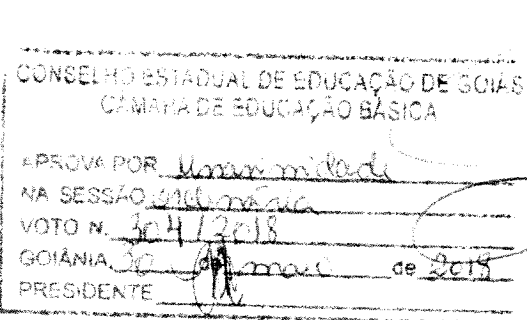 CONSELHO ESTADUAL DE EDUCAÇÃO DE GOIÁS
CÂMARA DE EDUCAÇÃO BÁSICA
APROVA POR Unanimidade
NA SESSÃO ordinária
VOTO N. 304/2018
GOIÂNIA, de maio de 2018
PRESIDENTE